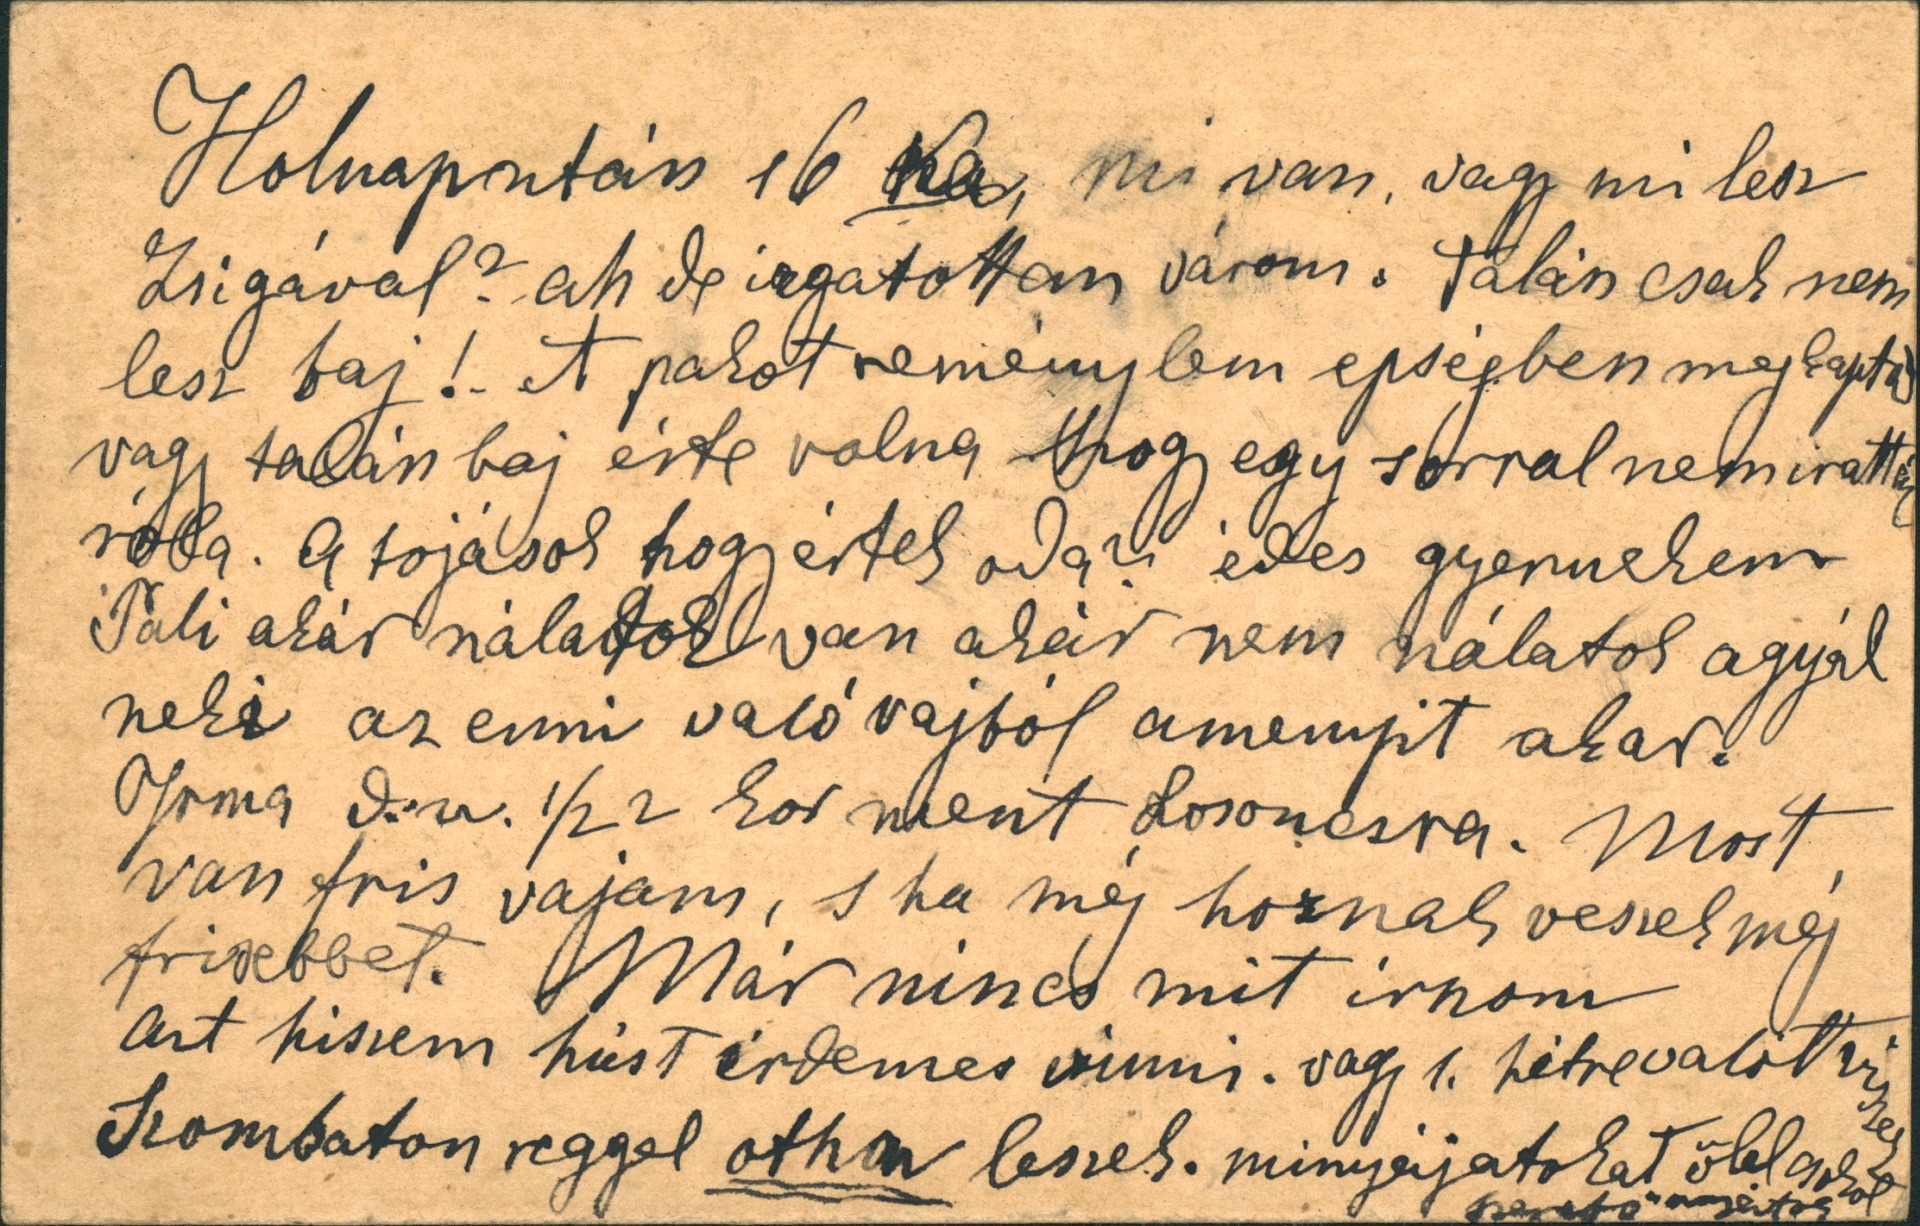 Holnaputān 16 ka, mi van, vagy mi lesz
Zsigával? ah de izgatottan várom. Talán csak nem
lesz baj! - A pakot reménylem epségben megkaptad
vagy talán baj érte volna hogy egy sorral nem irattál
róla. A tojások hogy értek oda? édes gyermekem
Pali akár nálatok van akár nem nálatok agyál
neki az enni való vajból amenyit akar.
Irma d.u. 1/2 2 kor ment Losonczra. Most
van fris vajam, s ha még hoznak veszek még
frisebbet. Már nincs mit irnom
Azt hiszem húst érdemes vinni. vagy 1. hétrevalót viszek
Szombaton reggel othon leszek. minyájatokat ölel csokol
szerető